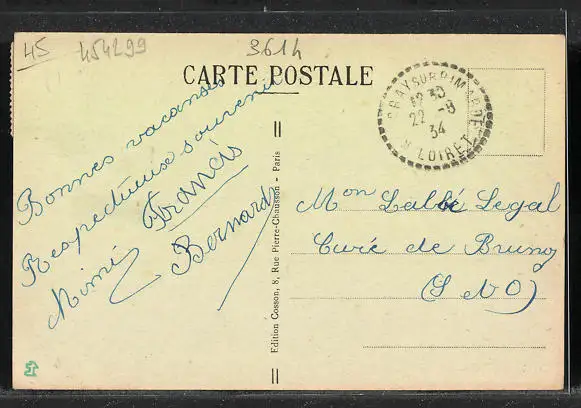 45
454299
3614
CARTE POSTALE
BRAY SUR RIMARDE
12 30
22 -8
34
LOIRET
Bonnes vacances
Respectueux souvenir
Mimi Francis
Bernard
Edition Cosson, 8, Rue Pierre-Chausson - Paris
Mon L'abbé Legal
Curé de Brunoy
(S et O)